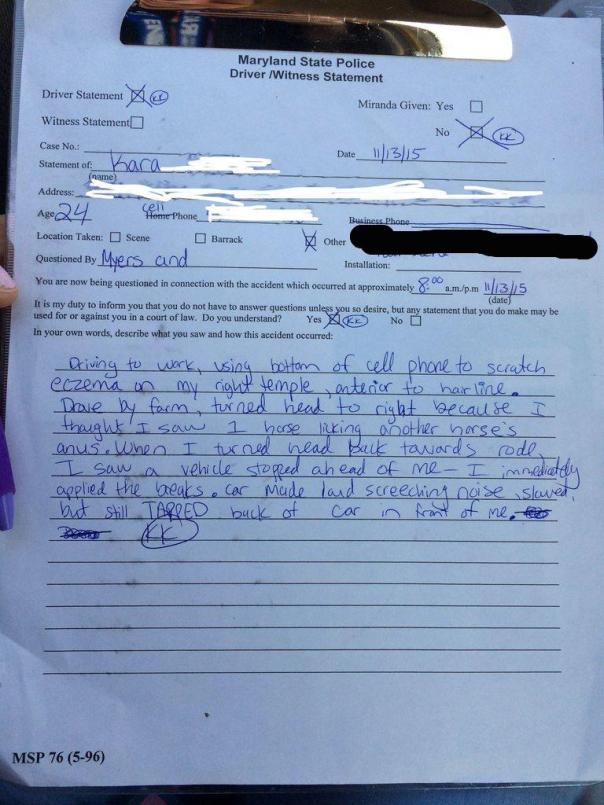 Maryland State Police
Driver /Witness Statement
Driver Statement KK
Miranda Given: Yes
Witness Statement
No KK
Case No.:
Date 11/13/15
Statement of: Kara
(name)
Address:
Age 24 cell Home Phone
Business Phone
Location Taken: Scene Barrack Other
Questioned By Myers and
Installation:
You are now being questioned in connection with the accident which occurred at approximately 8:00 a.m./p.m 11/13/15
(date)
It is my duty to inform you that you do not have to answer questions unless you so desire, but any statement that you do make may be
used for or against you in a court of law. Do you understand? Yes KK No
In your own words, describe what you saw and how this accident occurred:
Driving to work, using bottom of cell phone to scratch
eczema on my right temple, anterior to hairline.
Drove by farm, turned head to right because I
thought I saw 1 horse licking another horse's
anus. When I turned head back towards rode,
I saw a vehicle stopped ahead of me - I immediately
applied the breaks. Car made loud screeching noise, slowed,
but still TAPPED back of car in front of me.
KK
MSP 76 (5-96)